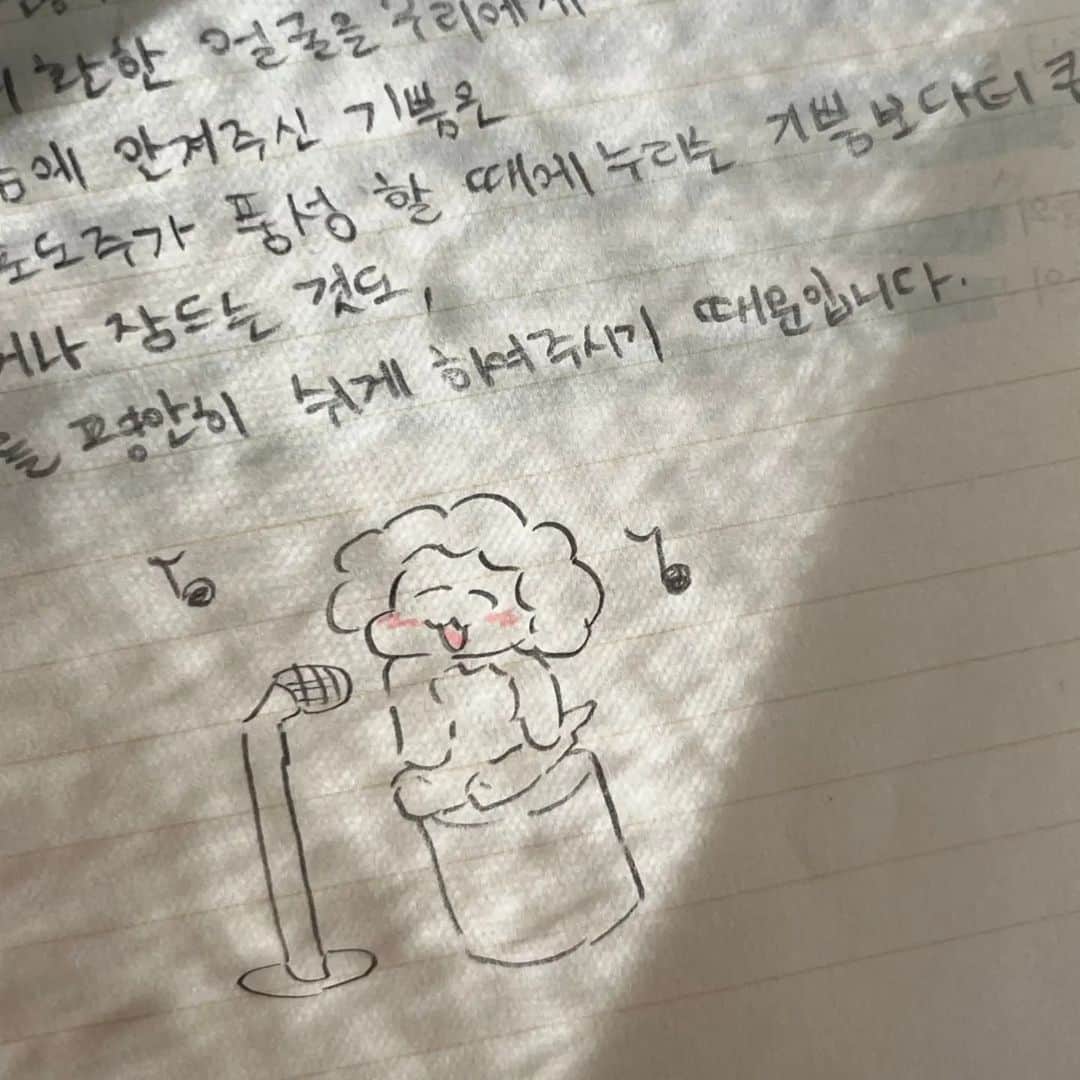 란한 얼굴을 우리에게
에 안겨주신 기쁨은
포도주가 풍성 할 때에 누리는 기쁨보다 더 큰
거나 잠드는 것도,
를 평안히 쉬게 하여주시기 때문입니다.